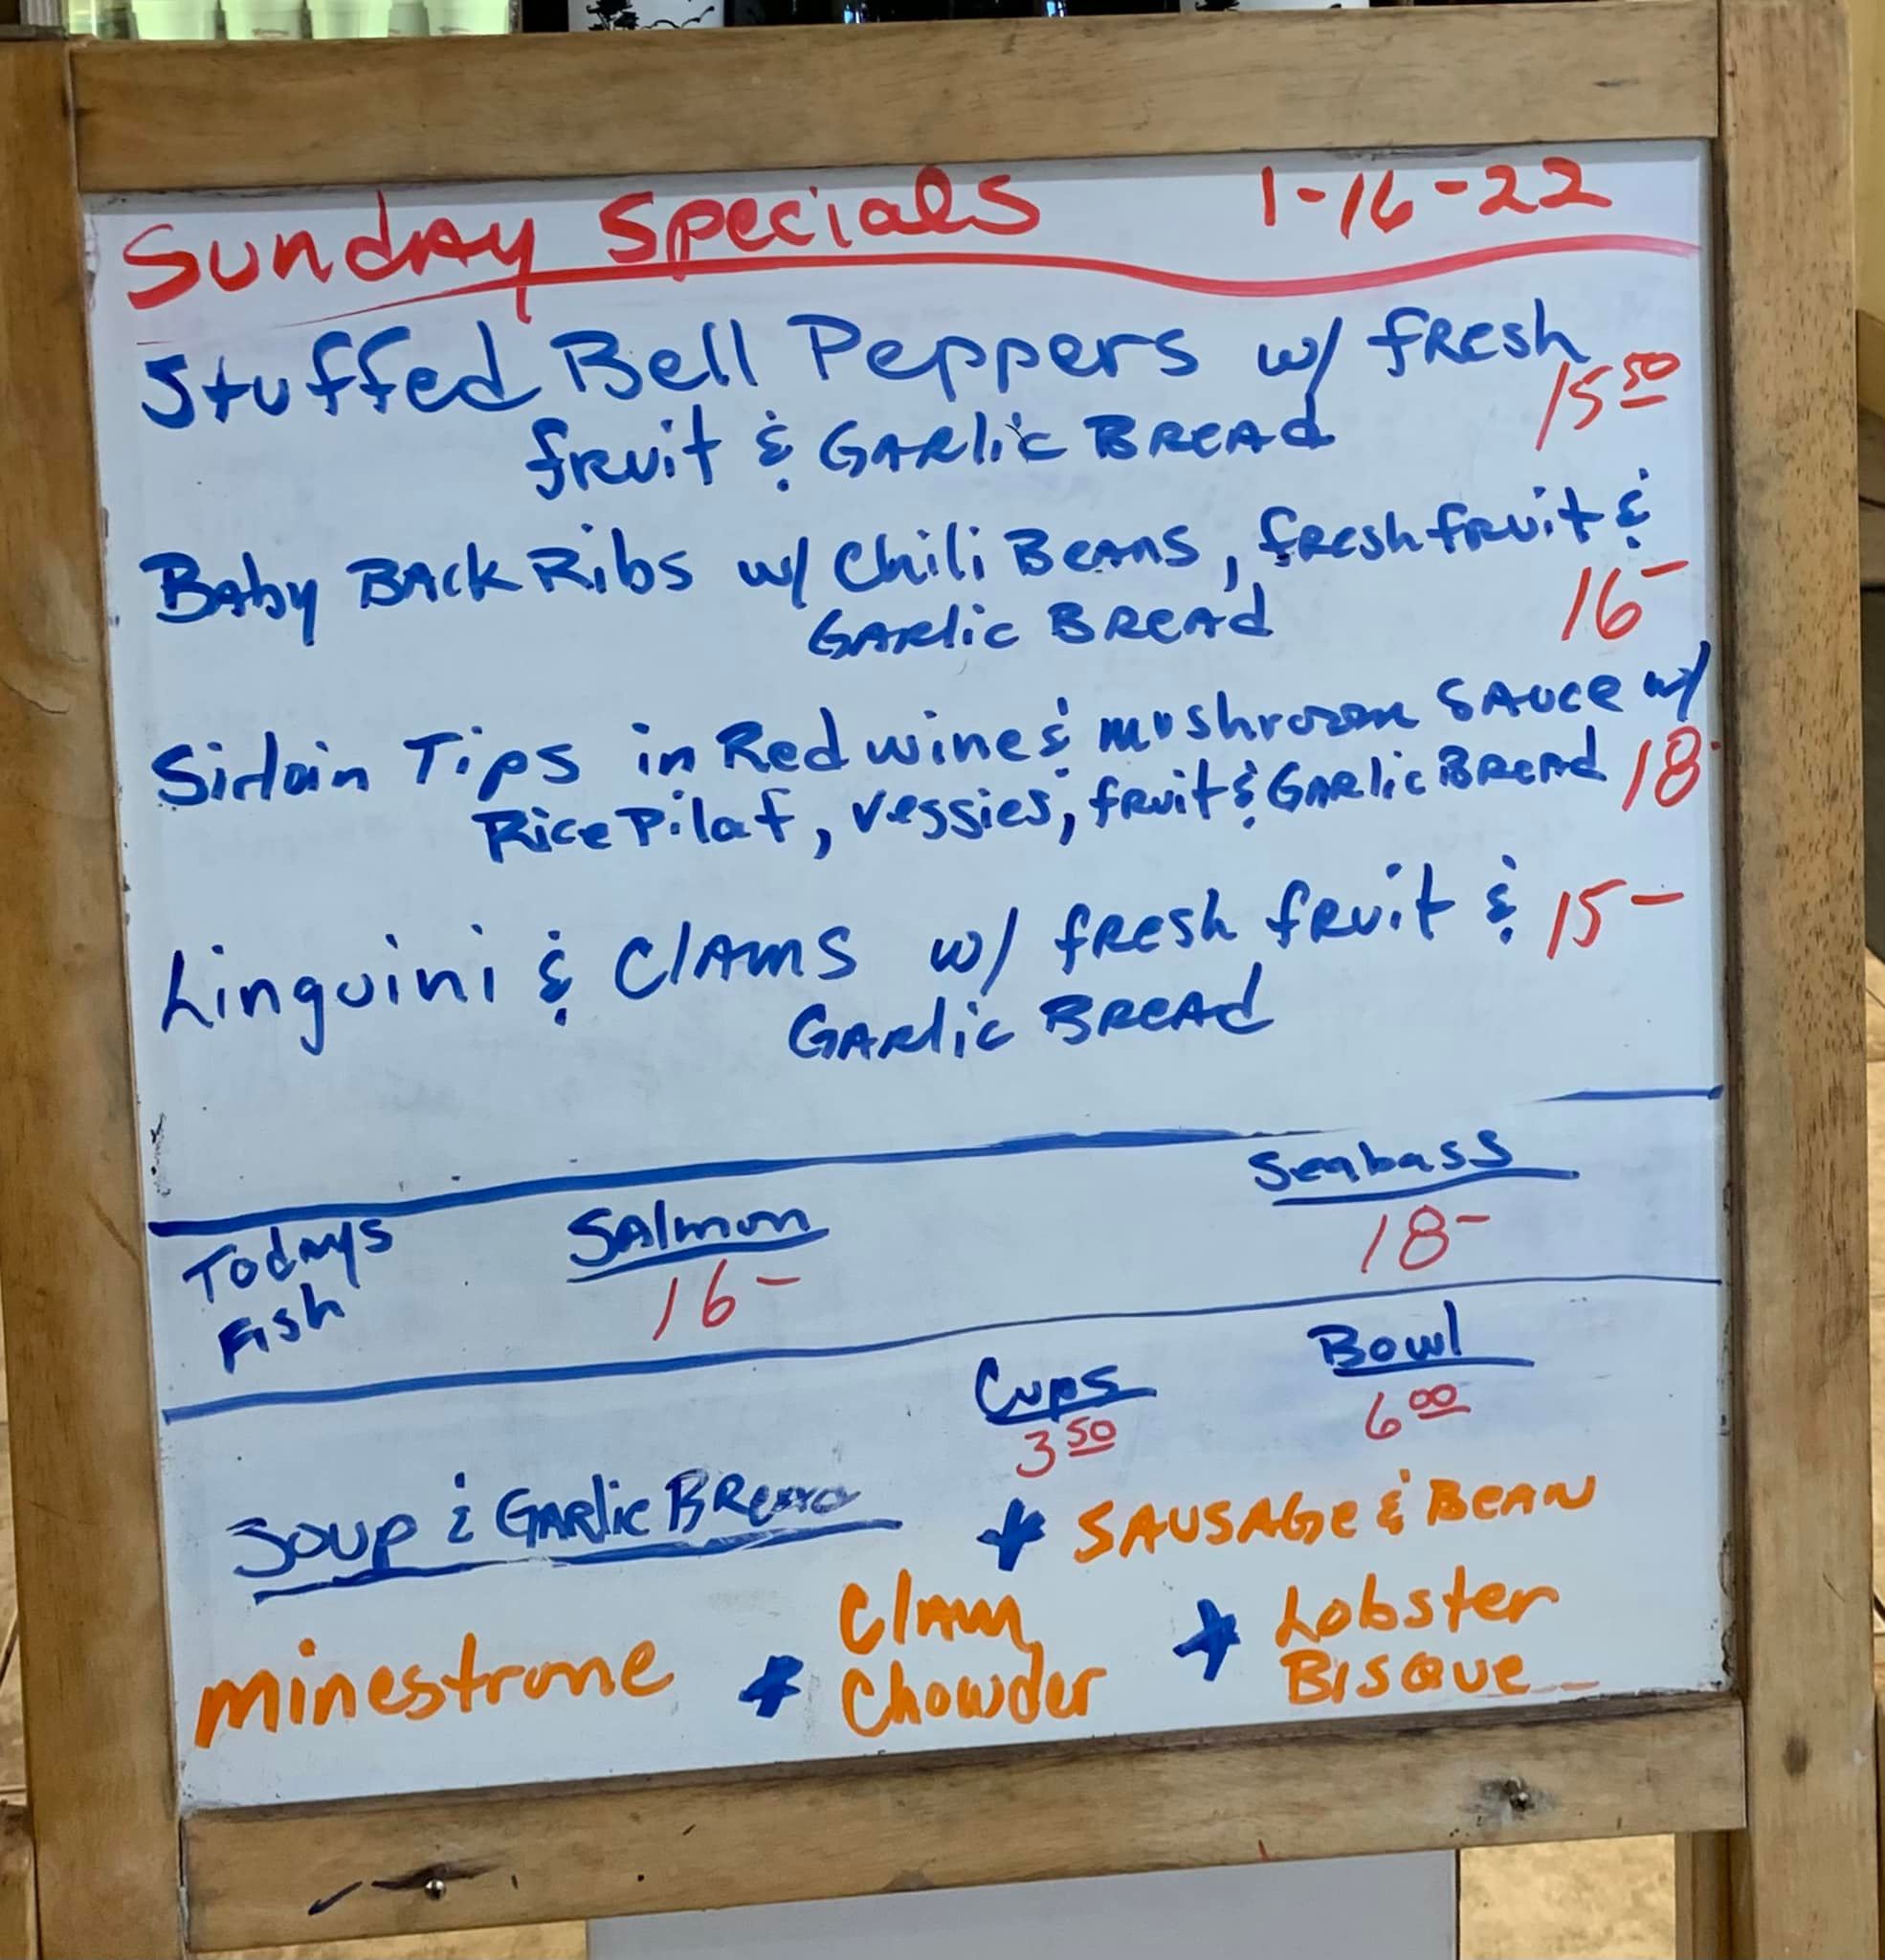 Sunday Specials 1-16-22
Stuffed Bell Peppers w/ fresh
fruit & Garlic Bread 15 50
Baby Back Ribs w/ Chili Beans, fresh fruit &
Garlic Bread 16-
Sirloin Tips in Red wine & mushroom Sauce w/
Rice Pilaf, veggies, fruit & Garlic Bread 18-
Linguini & Clams w/ fresh fruit & 15-
Garlic Bread
Todays Salmon Seabass
Fish 16- 18-
Cups Bowl
3 50 6 00
Soup & Garlic Bread * Sausage & Bean
minestrone * Clam * Lobster
Chowder Bisque